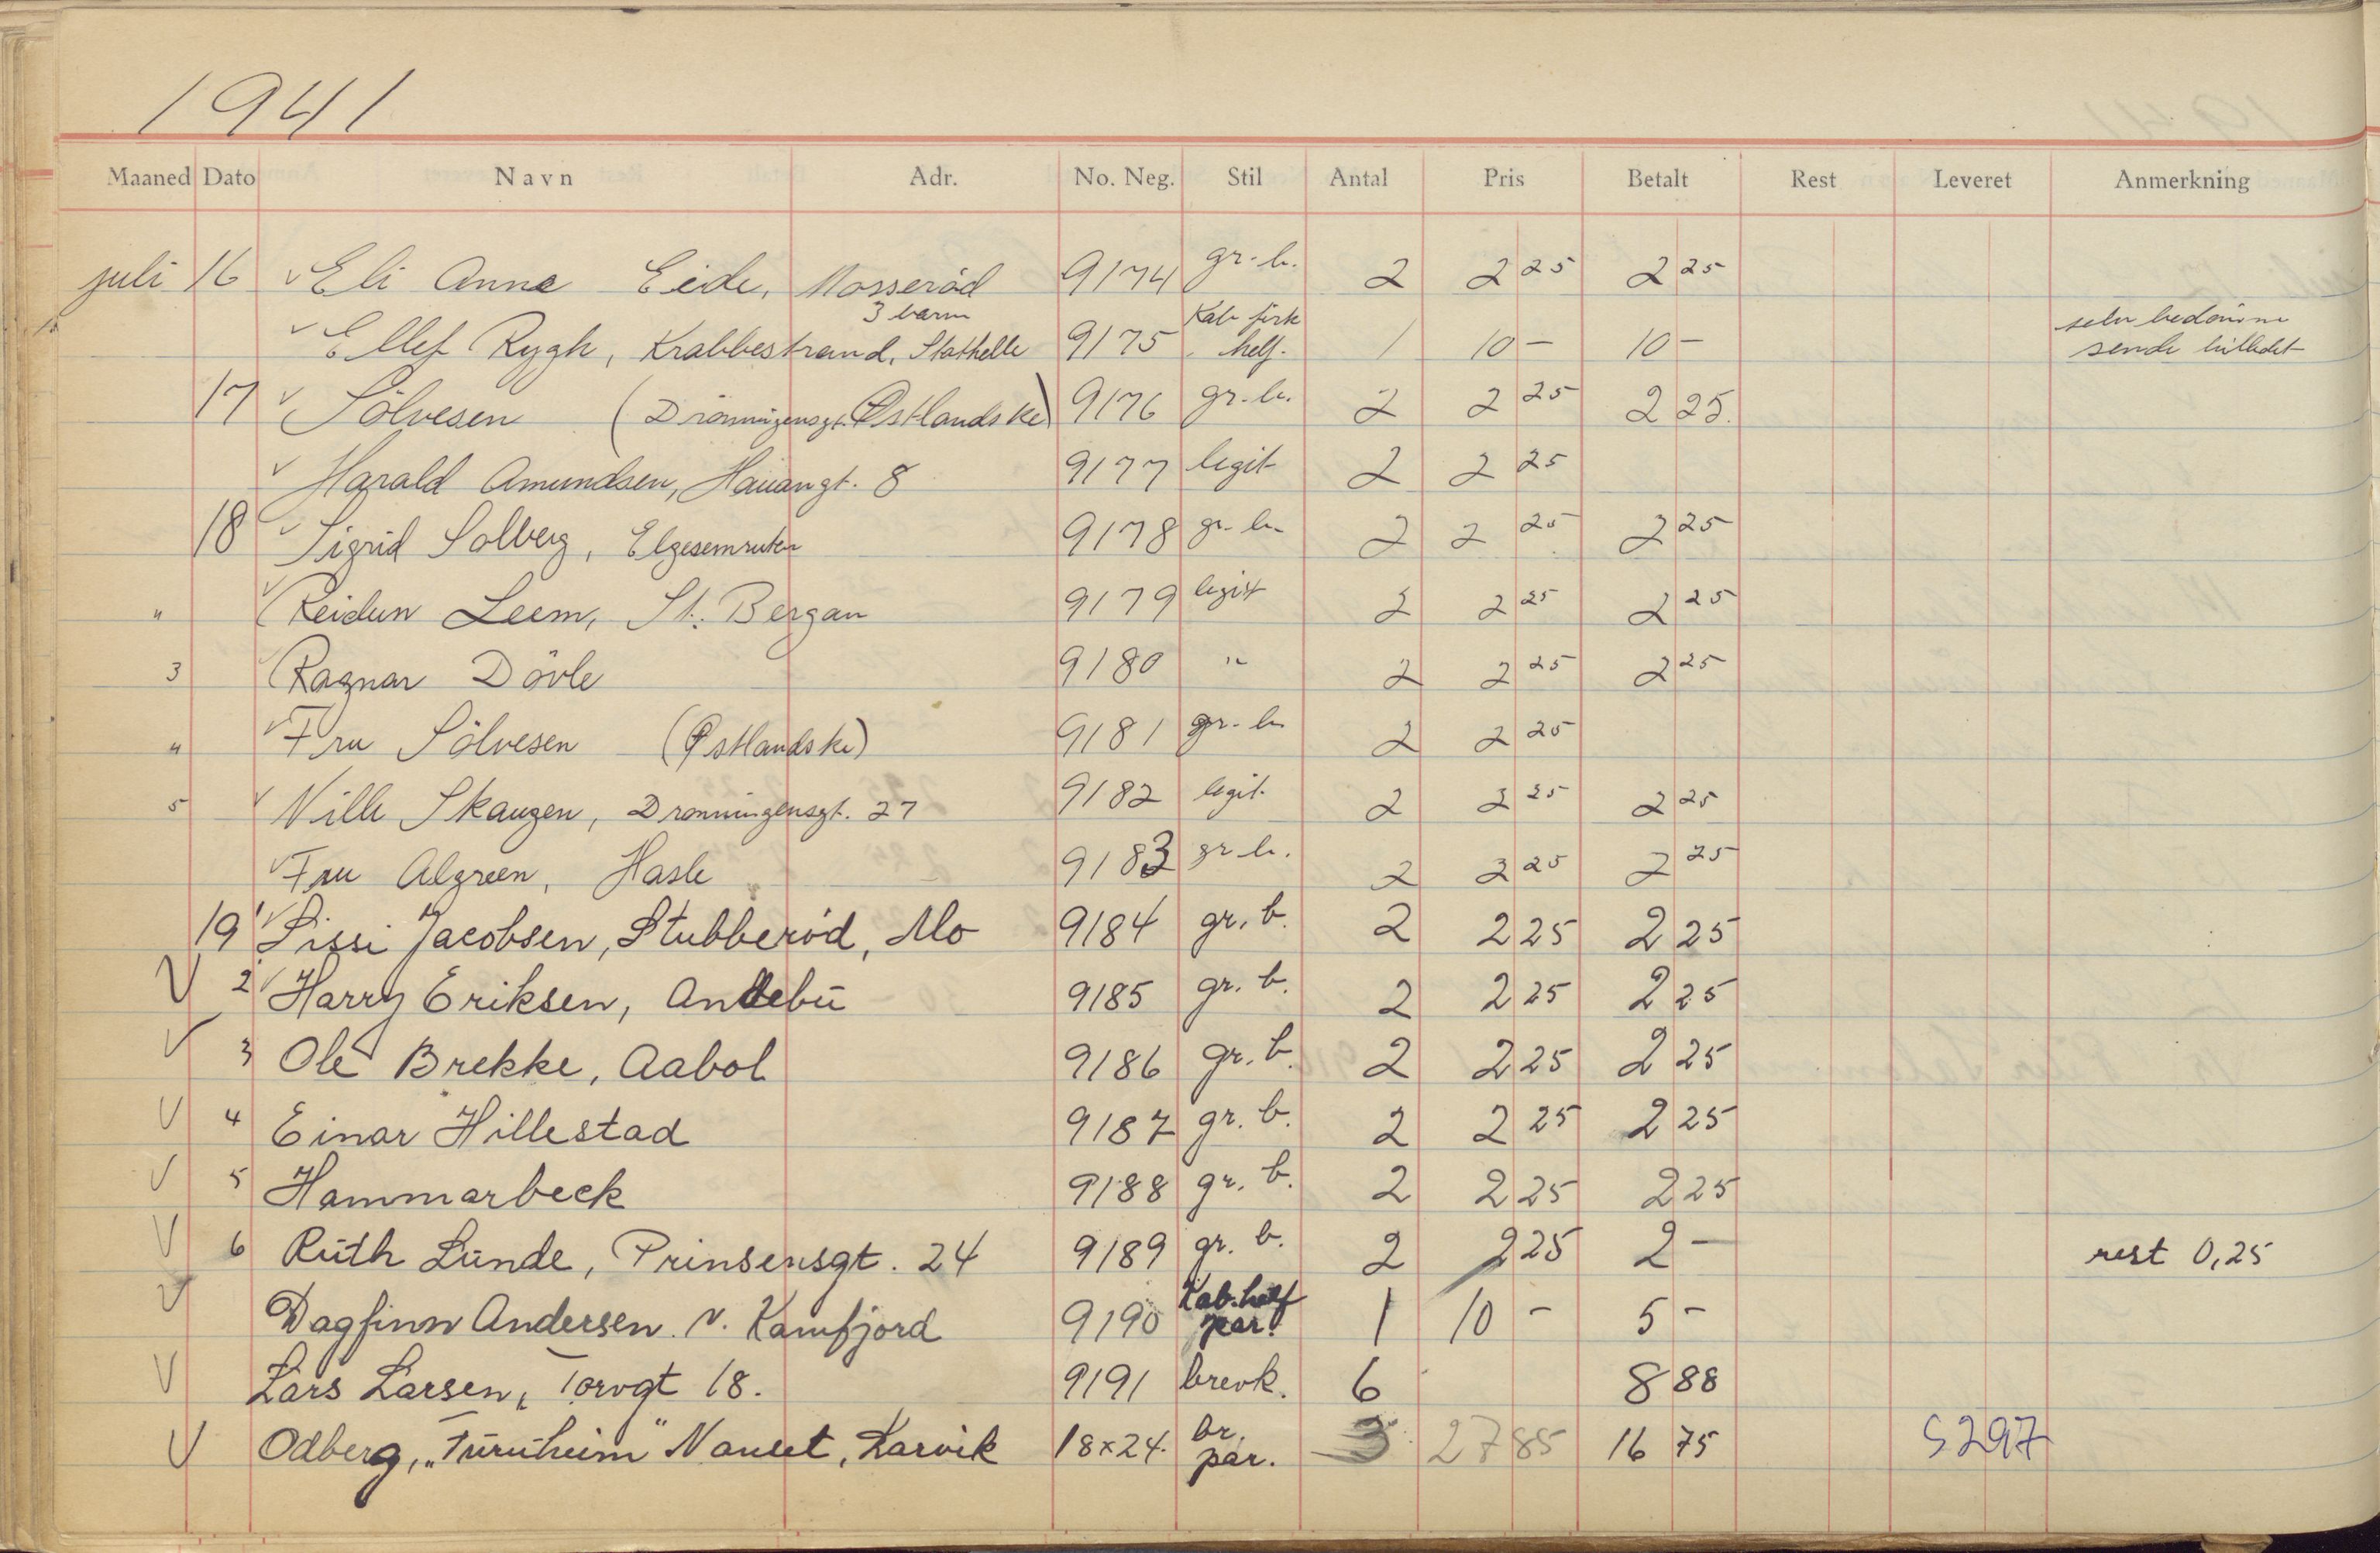 1941
Maaned Dato Navn Adr. No. Neg. Stil Antal Pris Betalt Rest Leveret Anmerkning
juli 16 Eli Anne Eide, Mosseröd 9174 gr. b. 2 2 25 2 25
3 barn
Ellef Rygh, Krabbestrand, Stathelle 9175 Kab helf. 1 10 - 10 - selv bedömme sende billedet
17 Sölvesen (Dronningensgt. Østlandske) 9176 gr. b. 2 2 25 2 25
Harald Amundsen, Hauangt. 8 9177 legit 2 2 25
18 Sigrid Solberg, Elgesemruten 9178 gr. b. 2 2 25 2 25
" Reidun Leem, St. Bergan 9179 legit 2 2 25 2 25
3 Ragnar Dövle 9180 " 2 2 25 2 25
4 Fru Sölvesen (Østlandske) 9181 gr. b. 2 2 25
5 Ville Skaugen, Dronningensgt. 27 9182 legit. 2 2 25 2 25
Fru Algreen, Hasle 9183 gr b. 2 2 25 2 25
19 Lissi Jacobsen, Stubberöd, Mo 9184 gr. b. 2 2 25 2 25
V 2 Harry Eriksen, Andebu 9185 gr. b. 2 2 25 2 25
V 3 Ole Brekke, Aabol 9186 gr. b. 2 2 25 2 25
V 4 Einar Hillestad 9187 gr. b. 2 2 25 2 25
V 5 Hammarbeck 9188 gr. b. 2 2 25 2 25
V 6 Ruth Lunde, Prinsensgt. 24 9189 gr. b. 2 2 25 2 - rest 0,25
V Dagfinn Andersen. v. Kamfjord 9190 Kab. helf par. 1 10 - 5 -
V Lars Larsen, Torvgt 18. 9191 brevk. 6 8 88
V Odberg, „Furuheim" Nanset, Larvik 18x24. br. par. 3 27 85 16 75 S297